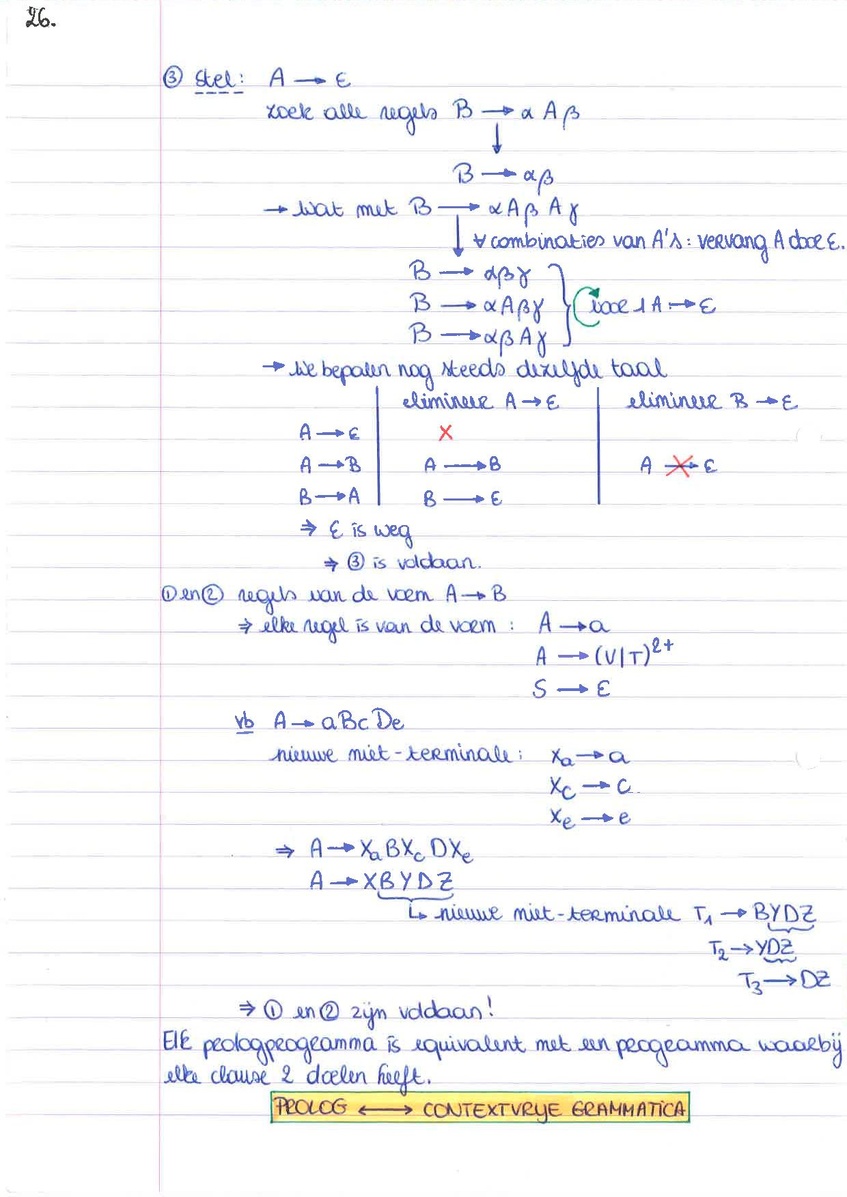 26.
③ stel: A → ε
zoek alle regels B → α A β
↓
B → αβ
→ wat met B → α A β A γ
↓ ∀ combinaties van A's : vervang A door ε.
B → αβγ
B → α A β γ } door 1 A → ε
B → αβ A γ
→ We bepalen nog steeds dezelfde taal
elimineer A → ε elimineer B → ε
A → ε X
A → B A → B A → ε
B → A B → ε
⇒ ε is weg
⇒ ③ is voldaan.
① en ② regels van de vorm A → B
⇒ elke regel is van de vorm : A → a
A → (V|T)²⁺
S → ε
vb A → aBcDe
nieuwe niet-terminale : Xa → a
Xc → c
Xe → e
⇒ A → Xa B Xc D Xe
A → X B Y D Z
↳ nieuwe niet-terminale T₁ → BYDZ
T₂ → YDZ
T₃ → DZ
⇒ ① en ② zijn voldaan!
Elk prologprogramma is equivalent met een programma waarbij
elke clause 2 doelen heeft.
PROLOG ⟷ CONTEXTVRIJE GRAMMATICA